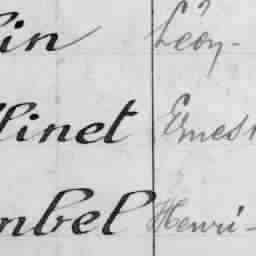 lin Léon-
llinet Ernest
mbel Henri-